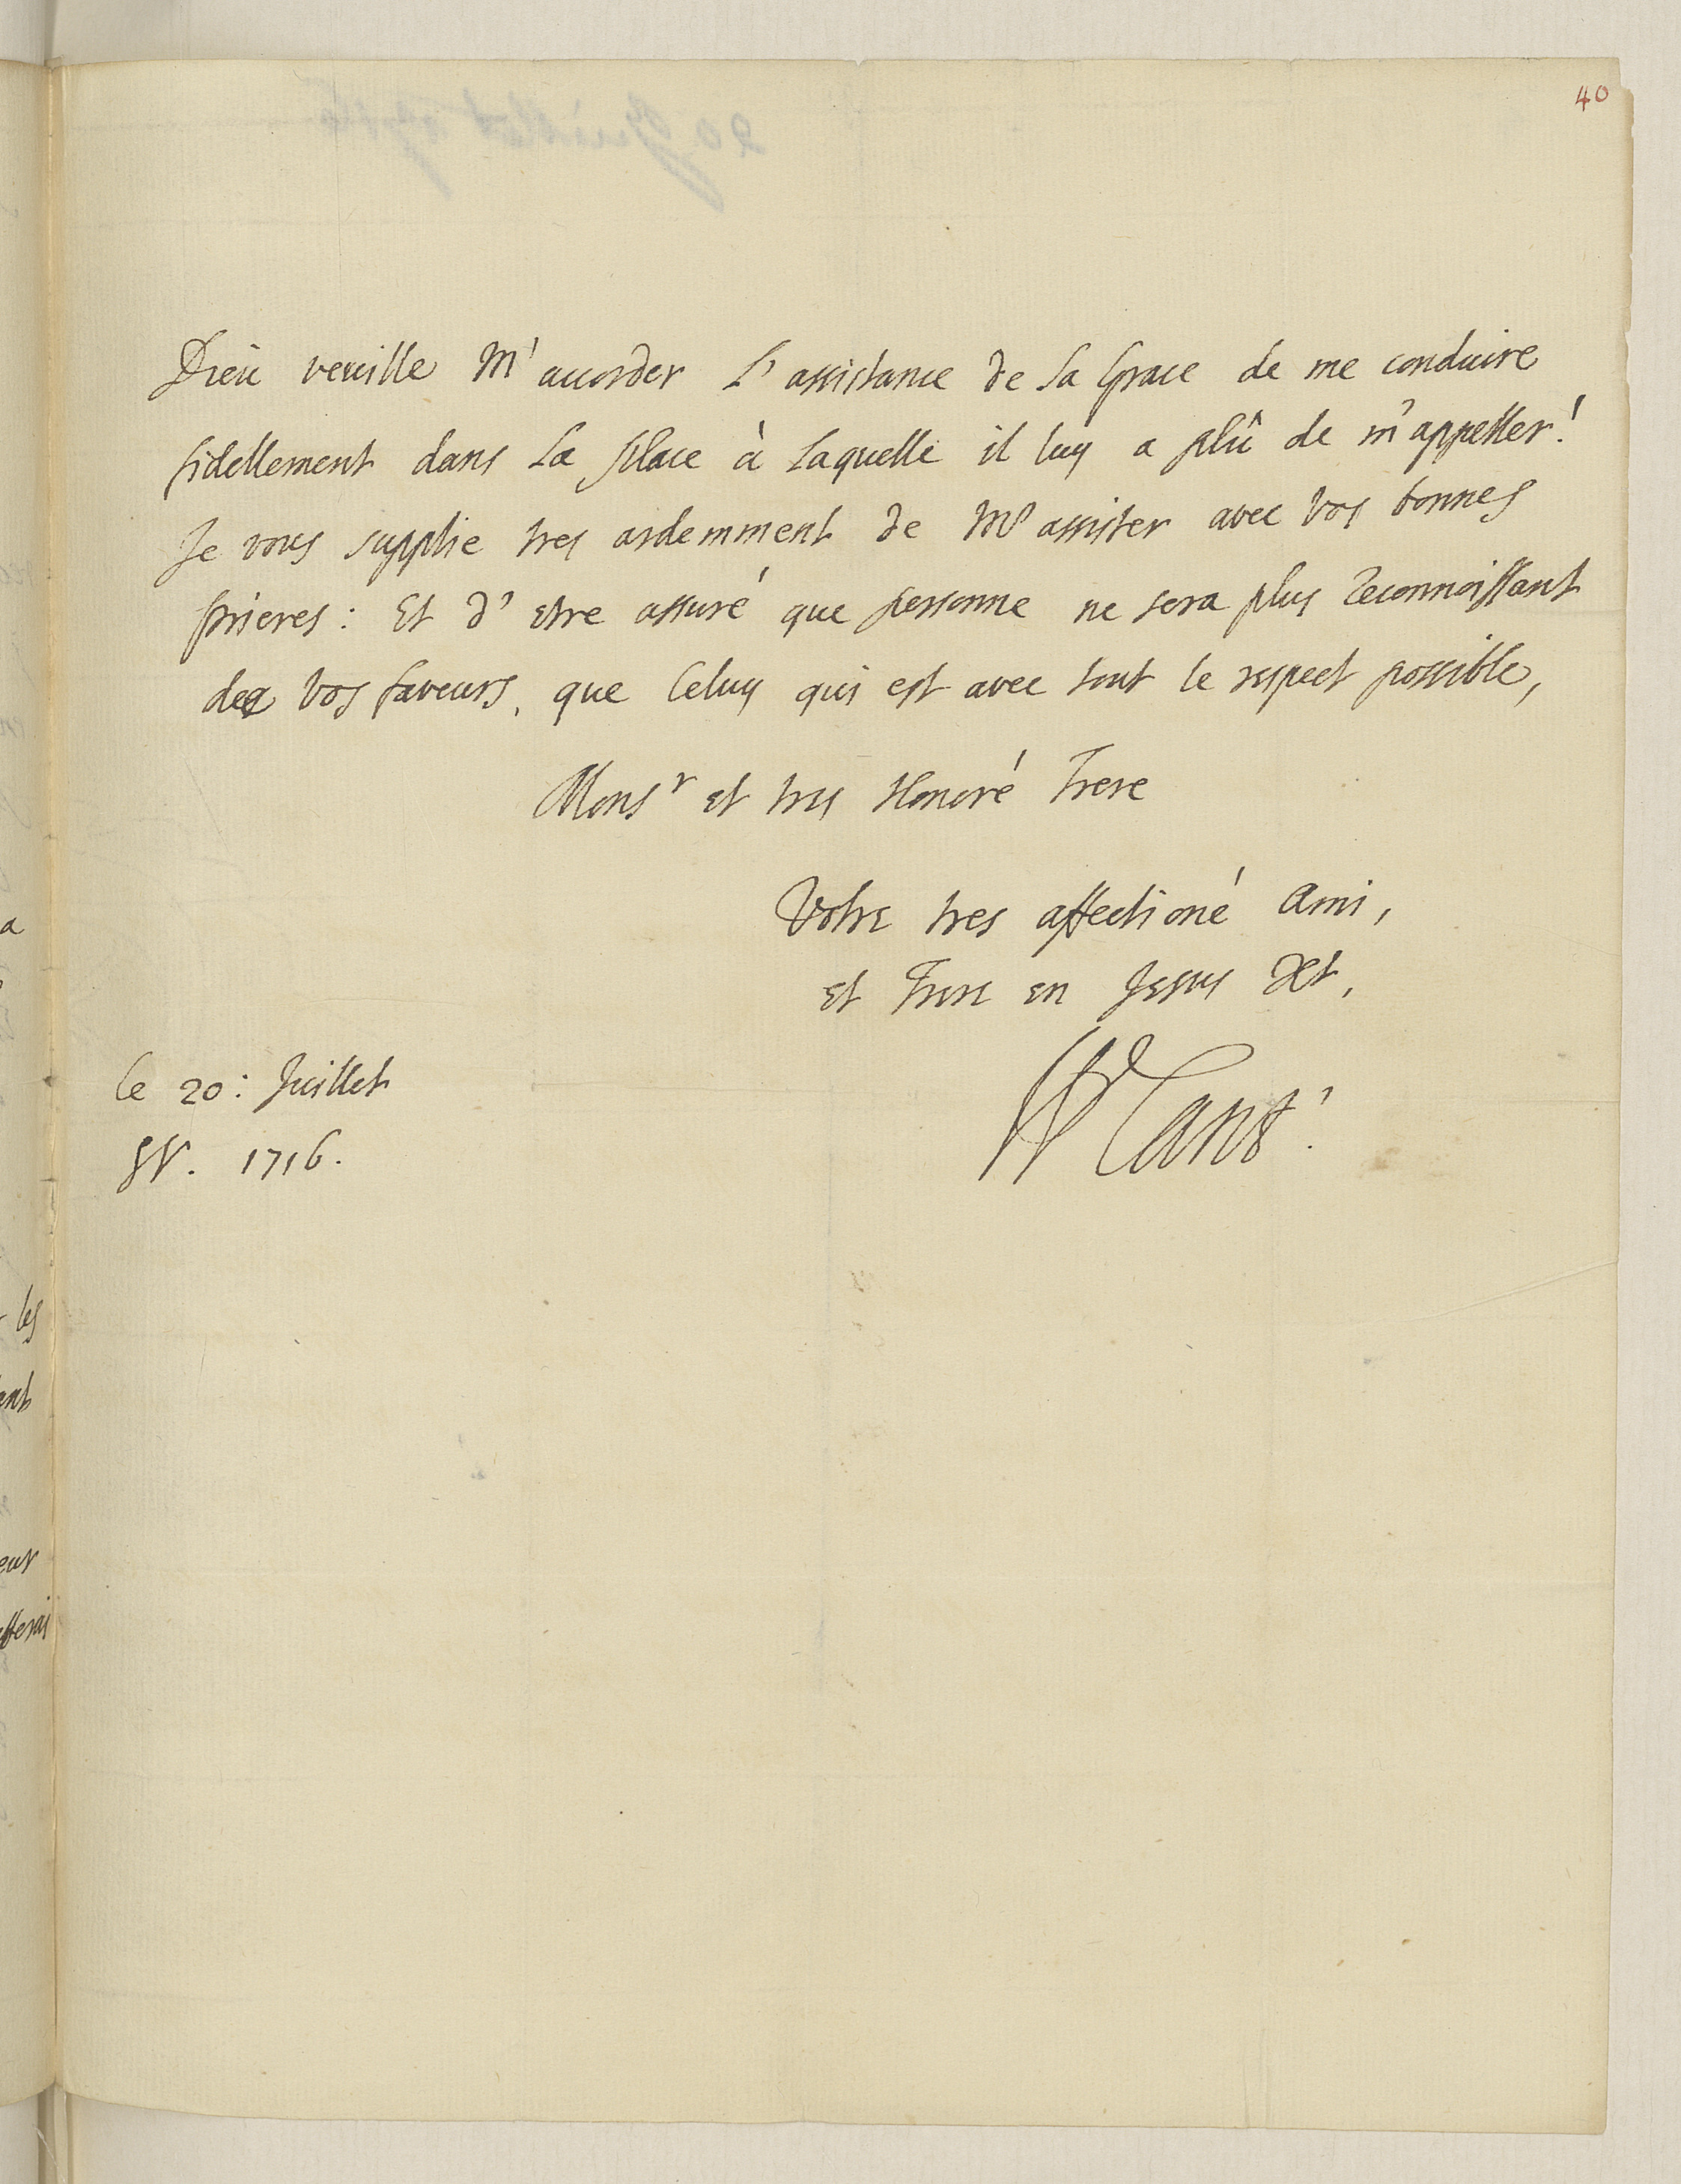 40
Dieu veuille M'accorder L'assistance de Sa Grace de me conduire
fidellement dans La place à Laquelle il luy a plû de m'appeller!
Je vous supplie tres ardemment de M'assister avec vos bonnes
prieres: Et d'etre assuré que personne ne sera plus Reconnoissant
de vos faveurs, que Celuy qui est avec tout le respect possible,
Monsr et tres Honoré Frere
Votre tres affectioné Ami,
et Frere en Jesus Xt,
W Cant:
le 20: Juillet
SV. 1716.
a
les
ant
eur